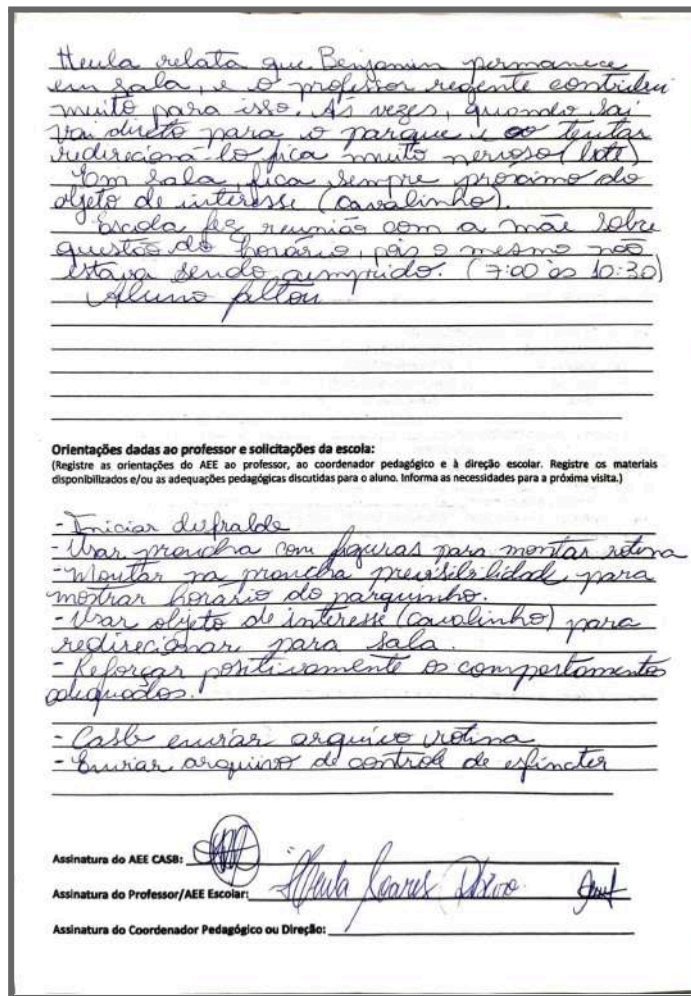 Heula relata que Benjamin permanece
em sala, e o professor regente contribui
muito para isso. Às vezes, quando sai
vai direto para o parque e ao tentar
redirecioná-lo fica muito nervoso (bate)
Em sala, fica sempre próximo do
objeto de interesse (cavalinho).
Escola fez reunião com a mãe sobre
questão do horário, pois o mesmo não
estava sendo cumprido. (7:00 às 10:30)
Aluno faltou
Orientações dadas ao professor e solicitações da escola:
(Registre as orientações do AEE ao professor, ao coordenador pedagógico e à direção escolar. Registre os materiais
disponibilizados e/ou as adequações pedagógicas discutidas para o aluno. Informa as necessidades para a próxima visita.)
- Iniciar desfralde
- Usar prancha com figuras para montar rotina
- Montar na prancha previsibilidade, para
mostrar horário do parquinho.
- Usar objeto de interesse (cavalinho) para
redirecionar para sala.
- Reforçar positivamente os comportamentos
adequados.
- Casb enviar arquivo rotina
- Enviar arquivo de control de esfincter
Assinatura do AEE CASB:
Assinatura do Professor/AEE Escolar: Heula Soares
Assinatura do Coordenador Pedagógico ou Direção: